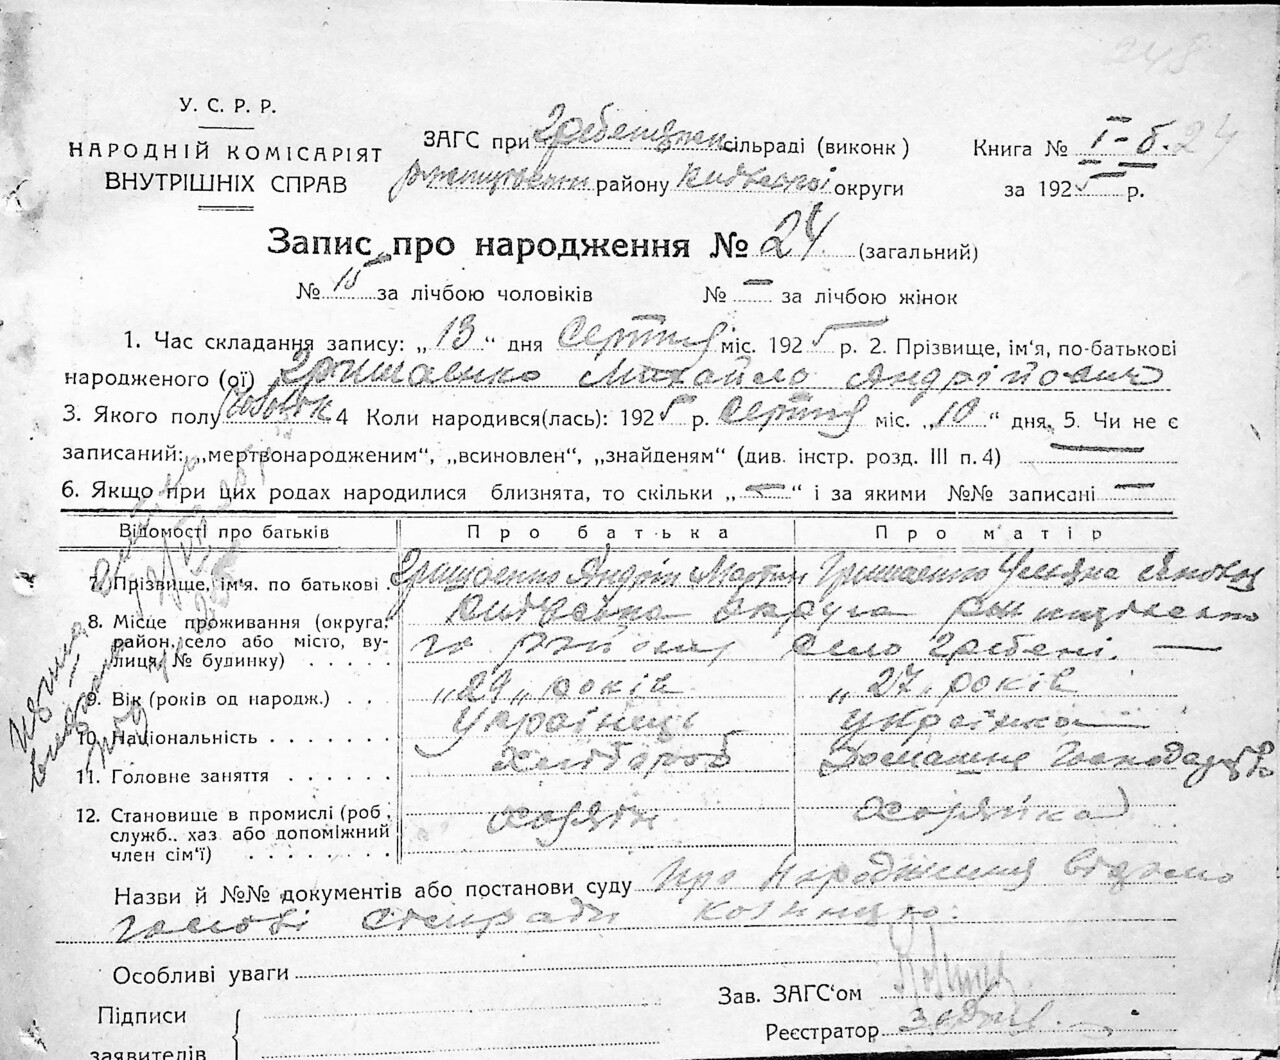 248
У. С. Р. Р.
НАРОДНІЙ КОМІСАРІЯТ
ВНУТРІШНІХ СПРАВ
ЗАГС при Гребенському сільраді (виконк)
району Київської округи
Книга № I-б. 24
за 1925 р.
Запис про народження № 24 (загальний)
№ 15 за лічбою чоловіків № — за лічбою жінок
1. Час складання запису: „13“ дня Серпня міс. 1925 р. 2. Прізвище, ім‘я, по-батькові
народженого (ої) Гришаенко Михайло Андрійович
3. Якого полу 4 Коли народився(лась): 1925 р. Серпня міс. „10“ дня. 5. Чи не є
записаний: „мертвонародженим“, „всиновлен“, „знайденям“ (див. інстр. розд. III п. 4) —
6. Якщо при цих родах народилися близнята, то скільки „—“ і за якими №№ записані —
Відомості про батьків Про батька Про матір
7. Прізвище, ім‘я. по батькові . Гришаенко Андрій Мартин Гришаенко Уляна Яковл
8. Місце проживання (округа, район, село або місто, вулиця, № будинку) . . . . . Київська округа
го району село Гребені. —
9. Вік (років од народж.) . . . „29„ років „27„ років
10. Національність . . . . . . . Українець українка
11. Головне заняття . . . . . . Хлібороб Домашне Господарство
12. Становище в промислі (роб., служб.. хаз або допоміжний член сім‘ї) . . . . . . . . хозяїн хозяйка
Назви й №№ документів або постанови суду Про Народження відомо
голові сільради
Особливі уваги
Підписи
заявителів
Зав. ЗАГС‘ом
Реєстратор